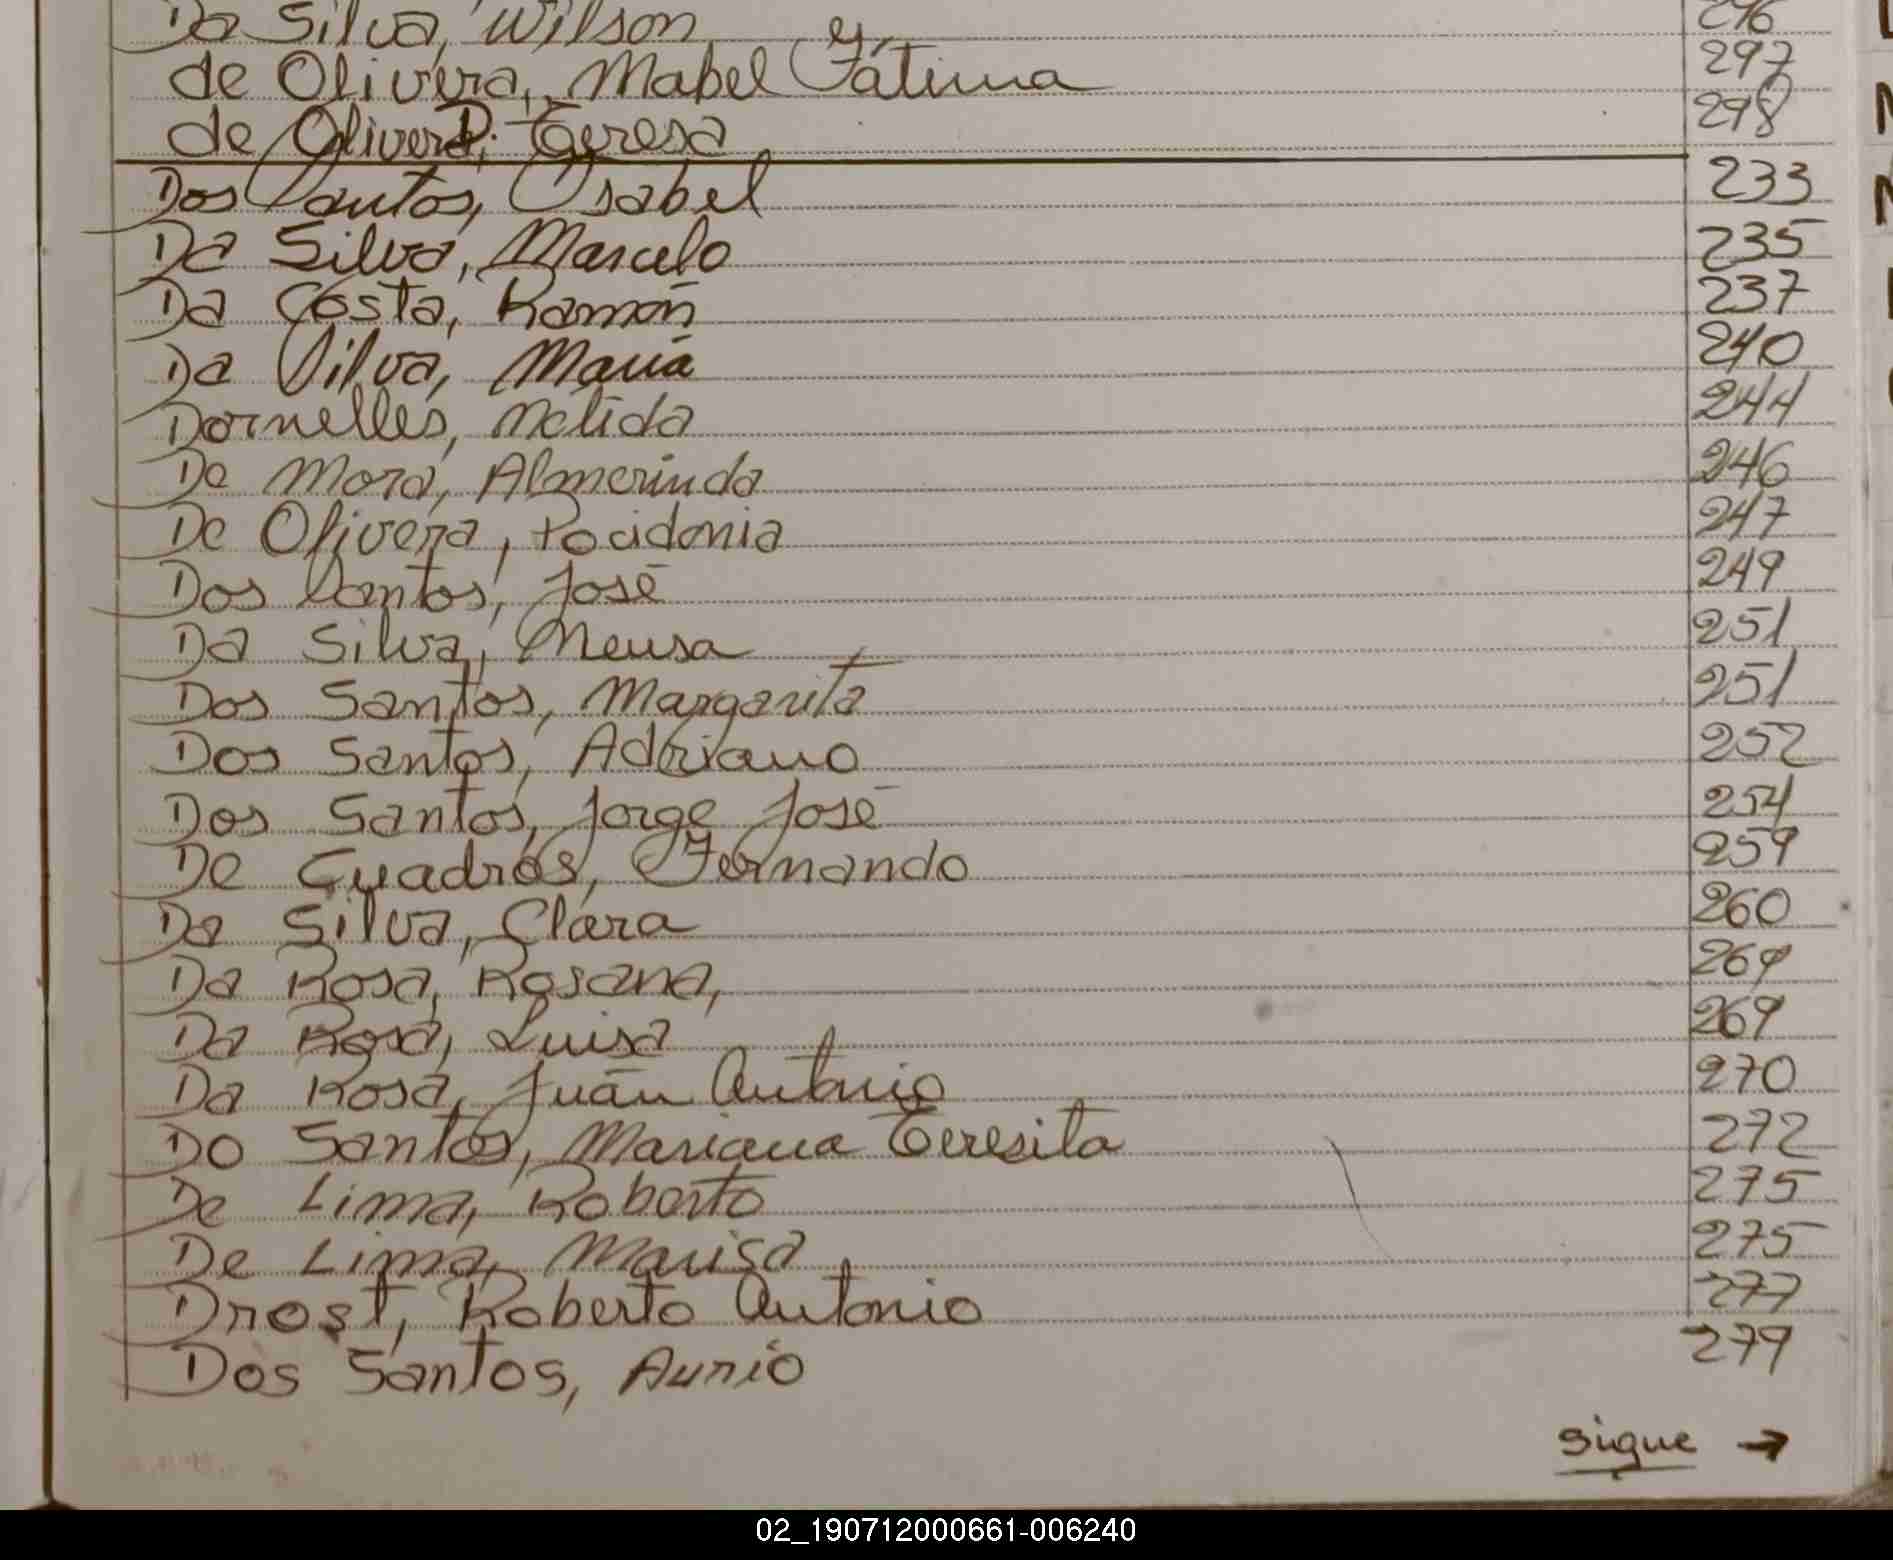 Da Silva, Wilson 296
de Olivera, Mabel Fátima 297
de Olivera, Teresa 298
D.
Dos Santos, Isabel 233
Da Silva, Marcelo 235
Da Costa, Ramón 237
Da Silva, María 240
Dornelles, Nélida 244
De Mora, Almerinda 246
De Olivera, Pocidonia 247
Dos Santos, José 249
Da Silva, Neusa 251
Dos Santos, Margarita 251
Dos Santos, Adriano 252
Dos Santos, Jorge José 254
De Cuadros, Fernando 259
Da Silva, Clara 260
Da Rosa, Rosana, 269
Da Rosa, Luisa 269
Da Rosa, Juán Antonio 270
Do Santos, Mariana Teresita 272
De Lima, Roberto 275
De Lima, Marisa 275
Drost, Roberto Antonio 277
Dos Santos, Aurio 279
sigue →
02_190712000661-006240